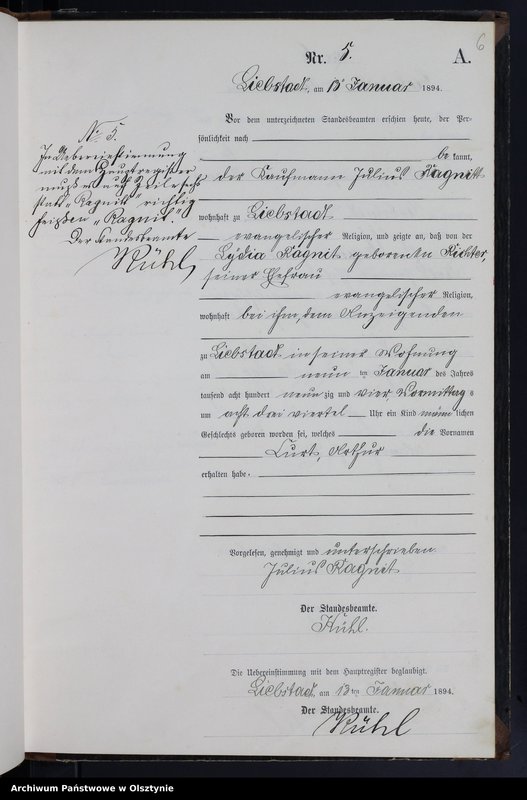 6
Nr. 5. A.
Liebstadt, am 13ten Januar 1894.
Vor dem unterzeichneten Standesbeamten erschien heute, der Per-
sönlichkeit nach
be kannt,
der Kaufmann Julius Ragnitt
wohnhaft zu Liebstadt
evangelischer Religion, und zeigte an, daß von der
Lydia Ragnit geborenen Richter,
seiner Ehefrau
evangelischer Religion,
wohnhaft bei ihm, dem Anzeigenden
zu Liebstadt in seiner Wohnung
am neun ten Januar des Jahres
tausend acht hundert neun zig und vier, Vormittag s
um acht drei viertel Uhr ein Kind männ lichen
Geschlechts geboren worden sei, welches die Vornamen
Curt, Arthur
erhalten habe.
Vorgelesen, genehmigt und unterschrieben
Julius Ragnit
Der Standesbeamte.
Kühl.
Die Uebereinstimmung mit dem Hauptregister beglaubigt.
Liebstadt, am 13ten Januar 1894.
Der Standesbeamte.
Kühl
No 5.
In Uebereinstimmung
mit dem Hauptregister
muß es auf Zeile sechs
statt "Ragnitt" richtig
heißen "Ragnit".
Der Standesbeamte
Kühl
Archiwum Państwowe w Olsztynie